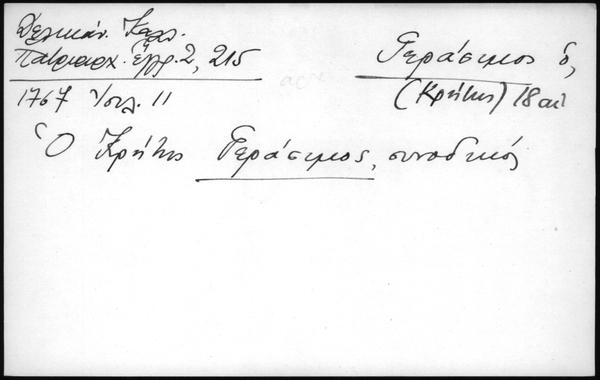 Δελικάν. Καλλ.
Πατριαρχ. Έγγρ. 2, 215
Γεράσιμος ὁ,
(Κρήτης) 18 αἰ
1767 Ἰουλ. 11
Ὁ Κρήτης Γεράσιμος, συνοδικός